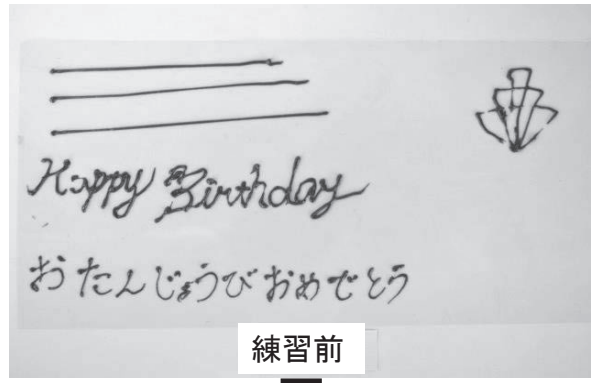 Happy Birthday
おたんじょうびおめでとう
練習前